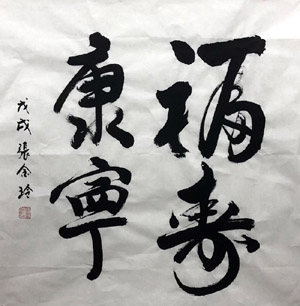 福寿
康寧
戊戌 張金玲